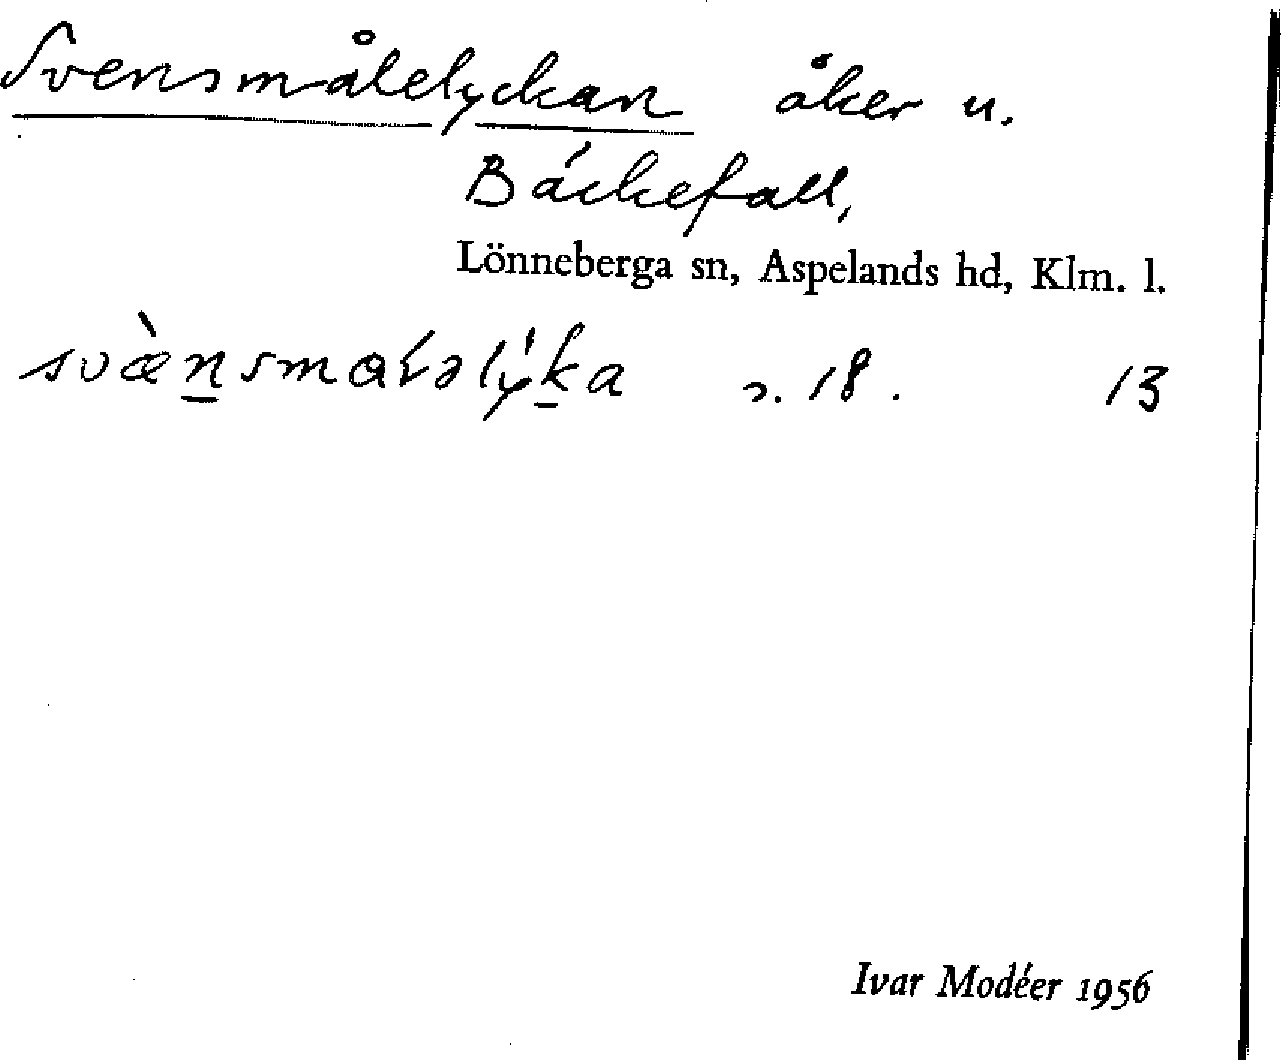 Svensmålelyckan åker u.
Bäckefall,
Lönneberga sn, Aspelands hd, Klm. l.
svæ̀n̲smaɫəlý̍k̲a s. 18. 13
Ivar Modéer 1956